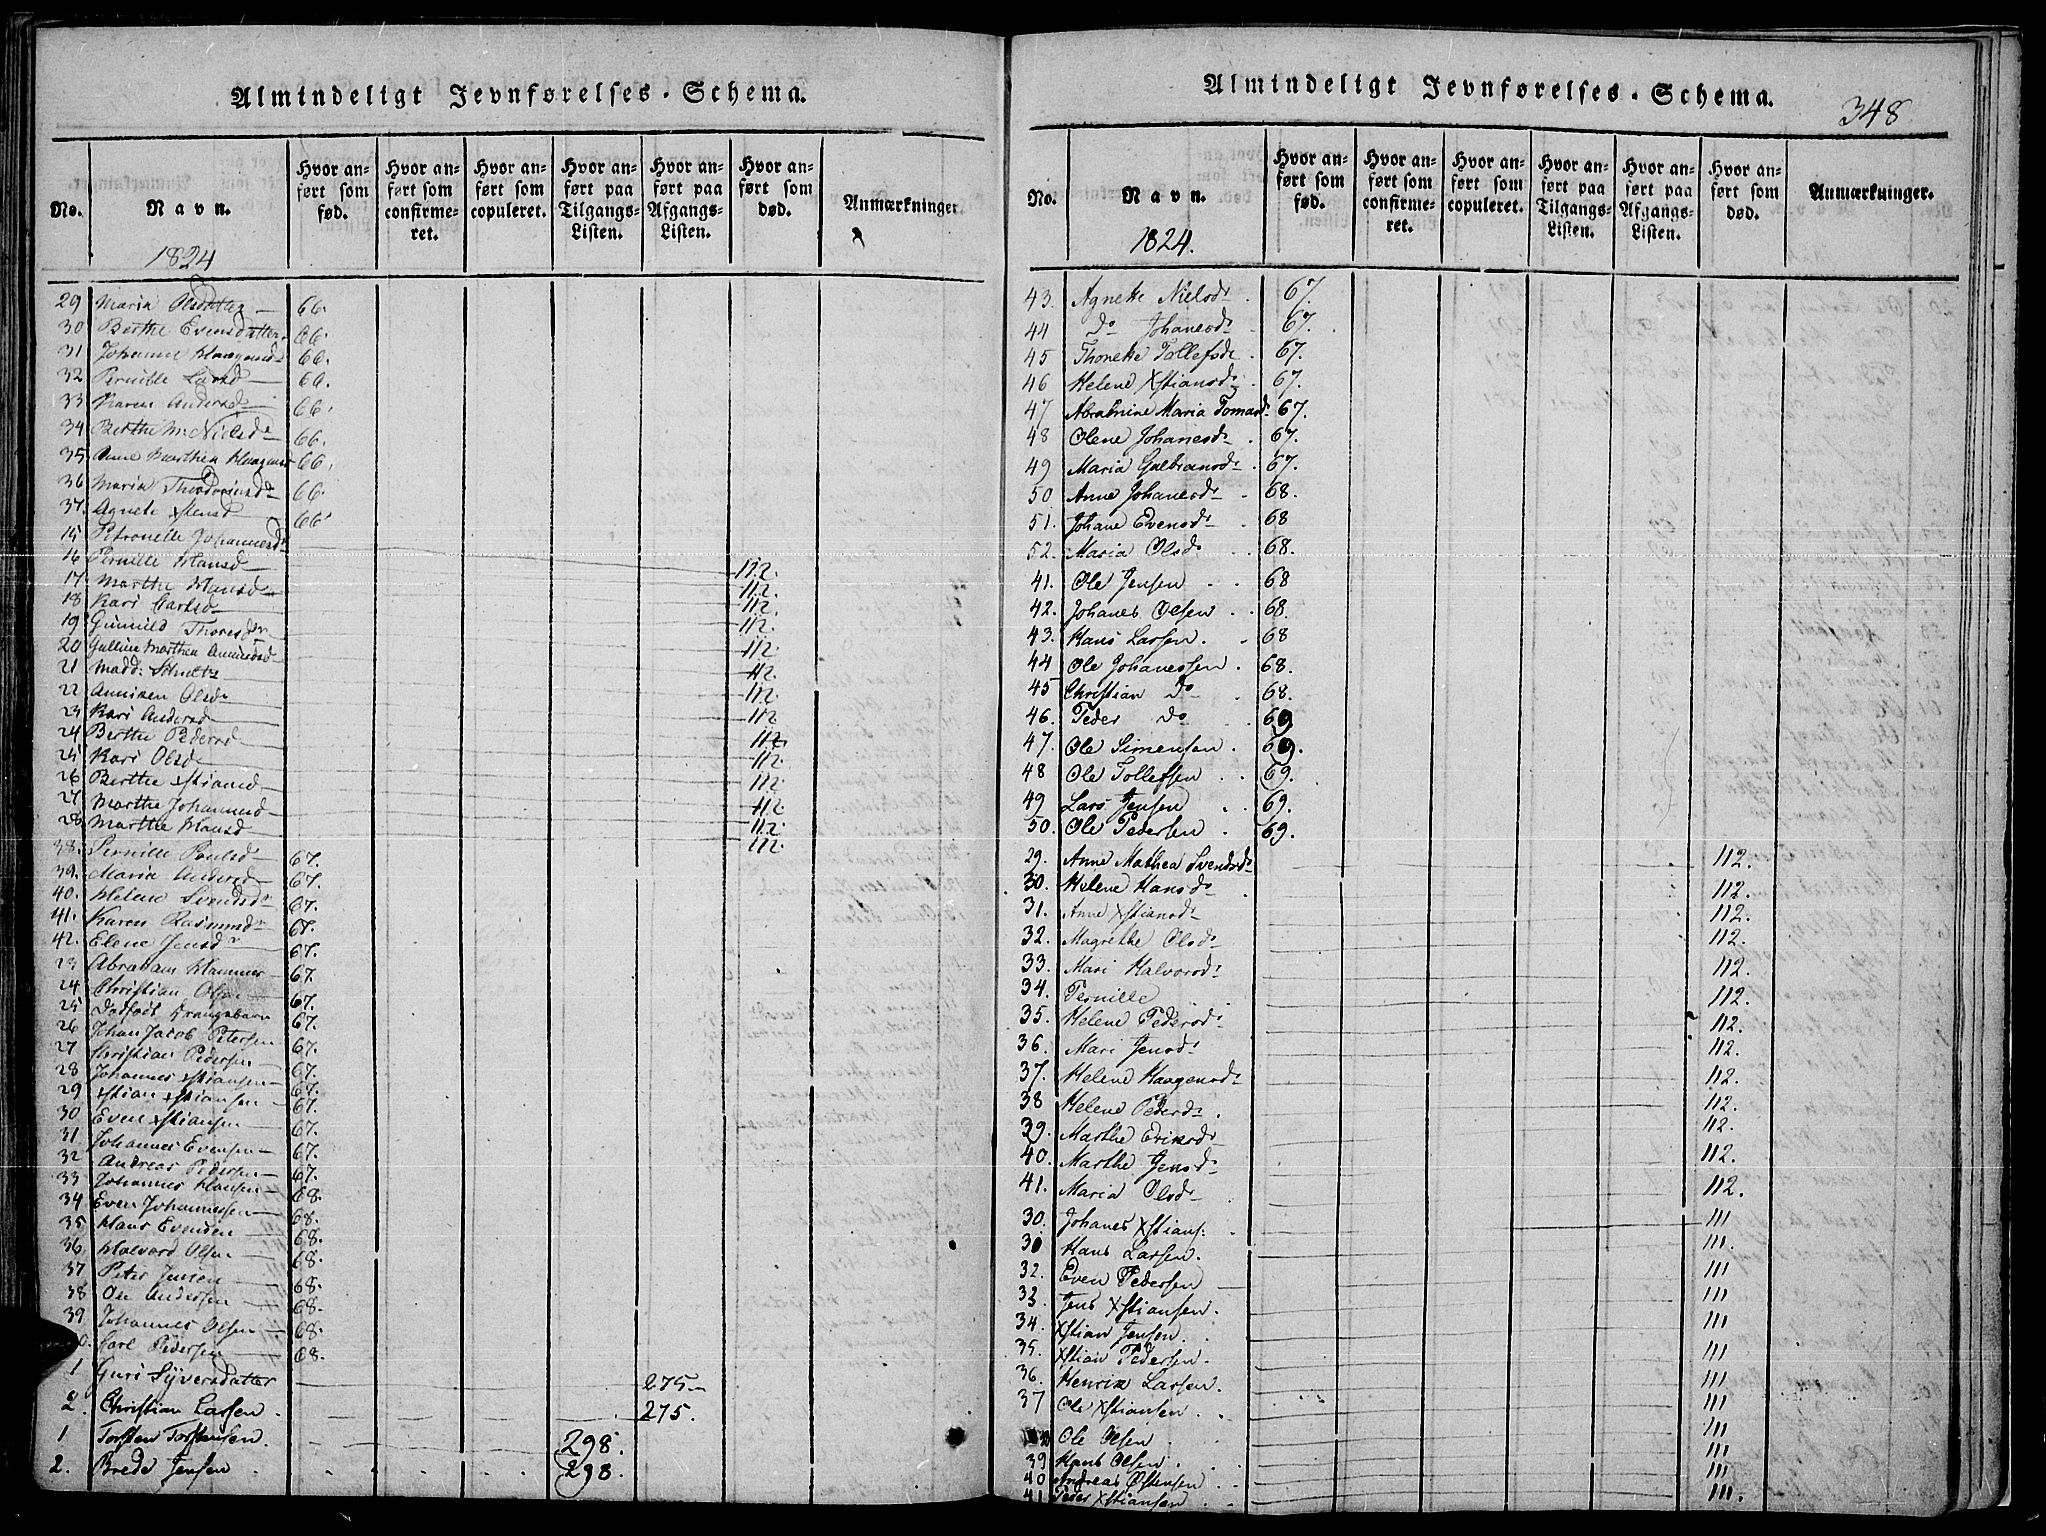 Almindeligt Jevnførelses-Schema.
No. Navn. Hvor anført som fød. Hvor anført som confirmeret. Hvor anført som copuleret. Hvor anført paa Tilgangs-Listen. Hvor anført paa Afgangs-Listen. Hvor anført som død. Anmærkninger
1824
29 Maria Olsdatter 66.
30 Berthe Evensdatter 66.
31 Johanne Haagensd 66.
32 Pernille Larsd 66.
33 Karen Andersd 66.
34 Berthe M Nielsd 66.
35 Anne Marthea Haagensd 66.
36 Maria 66.
37. Agnete Xstensd 66.
15 Petronelle Johannesd
16 Pernille Hansd 112.
17. Marthe Hansd 112.
18 Kari Carlsd 112.
19 Gunnild Thoresd 112.
20 Gulline Marthea 112.
21 Madd: 112.
22 Anniken Olsd 112.
23 Kari Andersd 112
24 Berthe Pedersd 112.
25 Kari Olsd 112.
26 Berthe Xstiansd 112.
27 Marthe Johannesd 112.
28 Marthe Hansd 112.
112.
38. Pernille Poulsd 67.
39. Maria Andersd 67.
40. Helene Svendsd 67.
41. Karen Rasmusd 67.
42. Elene Jensd 67.
23 Abraham Hammer 67.
24 Christian Olsen 67.
25 Dødfødt Drængebarn 67.
26 Johan Jacob Petersen 67.
27 Christian Pedersen 67.
28 Johannes Xstiansen 67.
29 Xstian Xstiansen 67.
30 Even Xstiansen 67.
31 Johannes Evensen 67.
32 Andreas Pedersen 67.
33 Johannes Hansen 68.
34 Even Johannessen 68.
35 Hans Evensen 68.
36 Halvord Olsen 68.
37 Peter Jensen 68.
38 Ole Andersen 68.
39 Johannes Olsen 68.
Carl Pedersen 68.
1 Guri Syversdatter 275.
2. Christian Larsen 275.
1 Torsten Torstensen. 298.
2. Brede Jensen 298.
Almindeligt Jevnførelses-Schema.
348
No. Navn. Hvor anført som fød. Hvor anført som confirmeret. Hvor anført som copuleret. Hvor anført paa Tilgangs-Listen. Hvor anført paa Afgangs-Listen. Hvor anført som død. Anmærkninger.
1824.
43. Agnethe Nielsd 67.
44 Do Johanesd 67.
45 Thonethe Tollefsd 67.
46 Helene Xstiansd 67.
47 Maria Tomasd 67.
48 Olene Johanesd 67.
49 Maria Gulbransd 67.
50 Anne Johanesd 68.
51. Johane Evensd 68
52. Maria Olsd 68.
41. Ole Jensen 68
42. Johanes Olsen 68.
43. Hans Larsen. 68
44 Ole Johanessen. 68.
45 Christian Do 68.
46. Peder Do 69
47. Ole Simensen. 69.
48 Ole Tollefsen 69.
49 Lars Jensen 69.
50. Ole Pedersen 69.
29. Anne Mathea Svendsd 112.
30. Helene Hansd 112.
31. Anne Xstiansd 112.
32. Magrethe Olsd 112.
33. Mari Halvorsd 112.
34. Pernille 112.
35. Helene Pedersd 112.
36. Mari Jensd 112.
37. Helene Haagensd 112.
38 Helene Pedersd 112.
39. Marthe Eriksd 112.
40. Marthe Jensd 112.
41. Maria Olsd 112.
30. Johanes Xstians. 111
31 Hans Larsen. 111.
32. Even Pedersen 111
33. Jens Xstiansen. 111
34 Xstian Jensen. 111
35. Xstian Pedersen. 111
36. Henrik Larsen. 111
37 Ole Xstiansen 111
Ole Olsen 111
39 Hans Olsen. 111
40 Andreas Østensen 111
41 Peder Xstiansen 111.